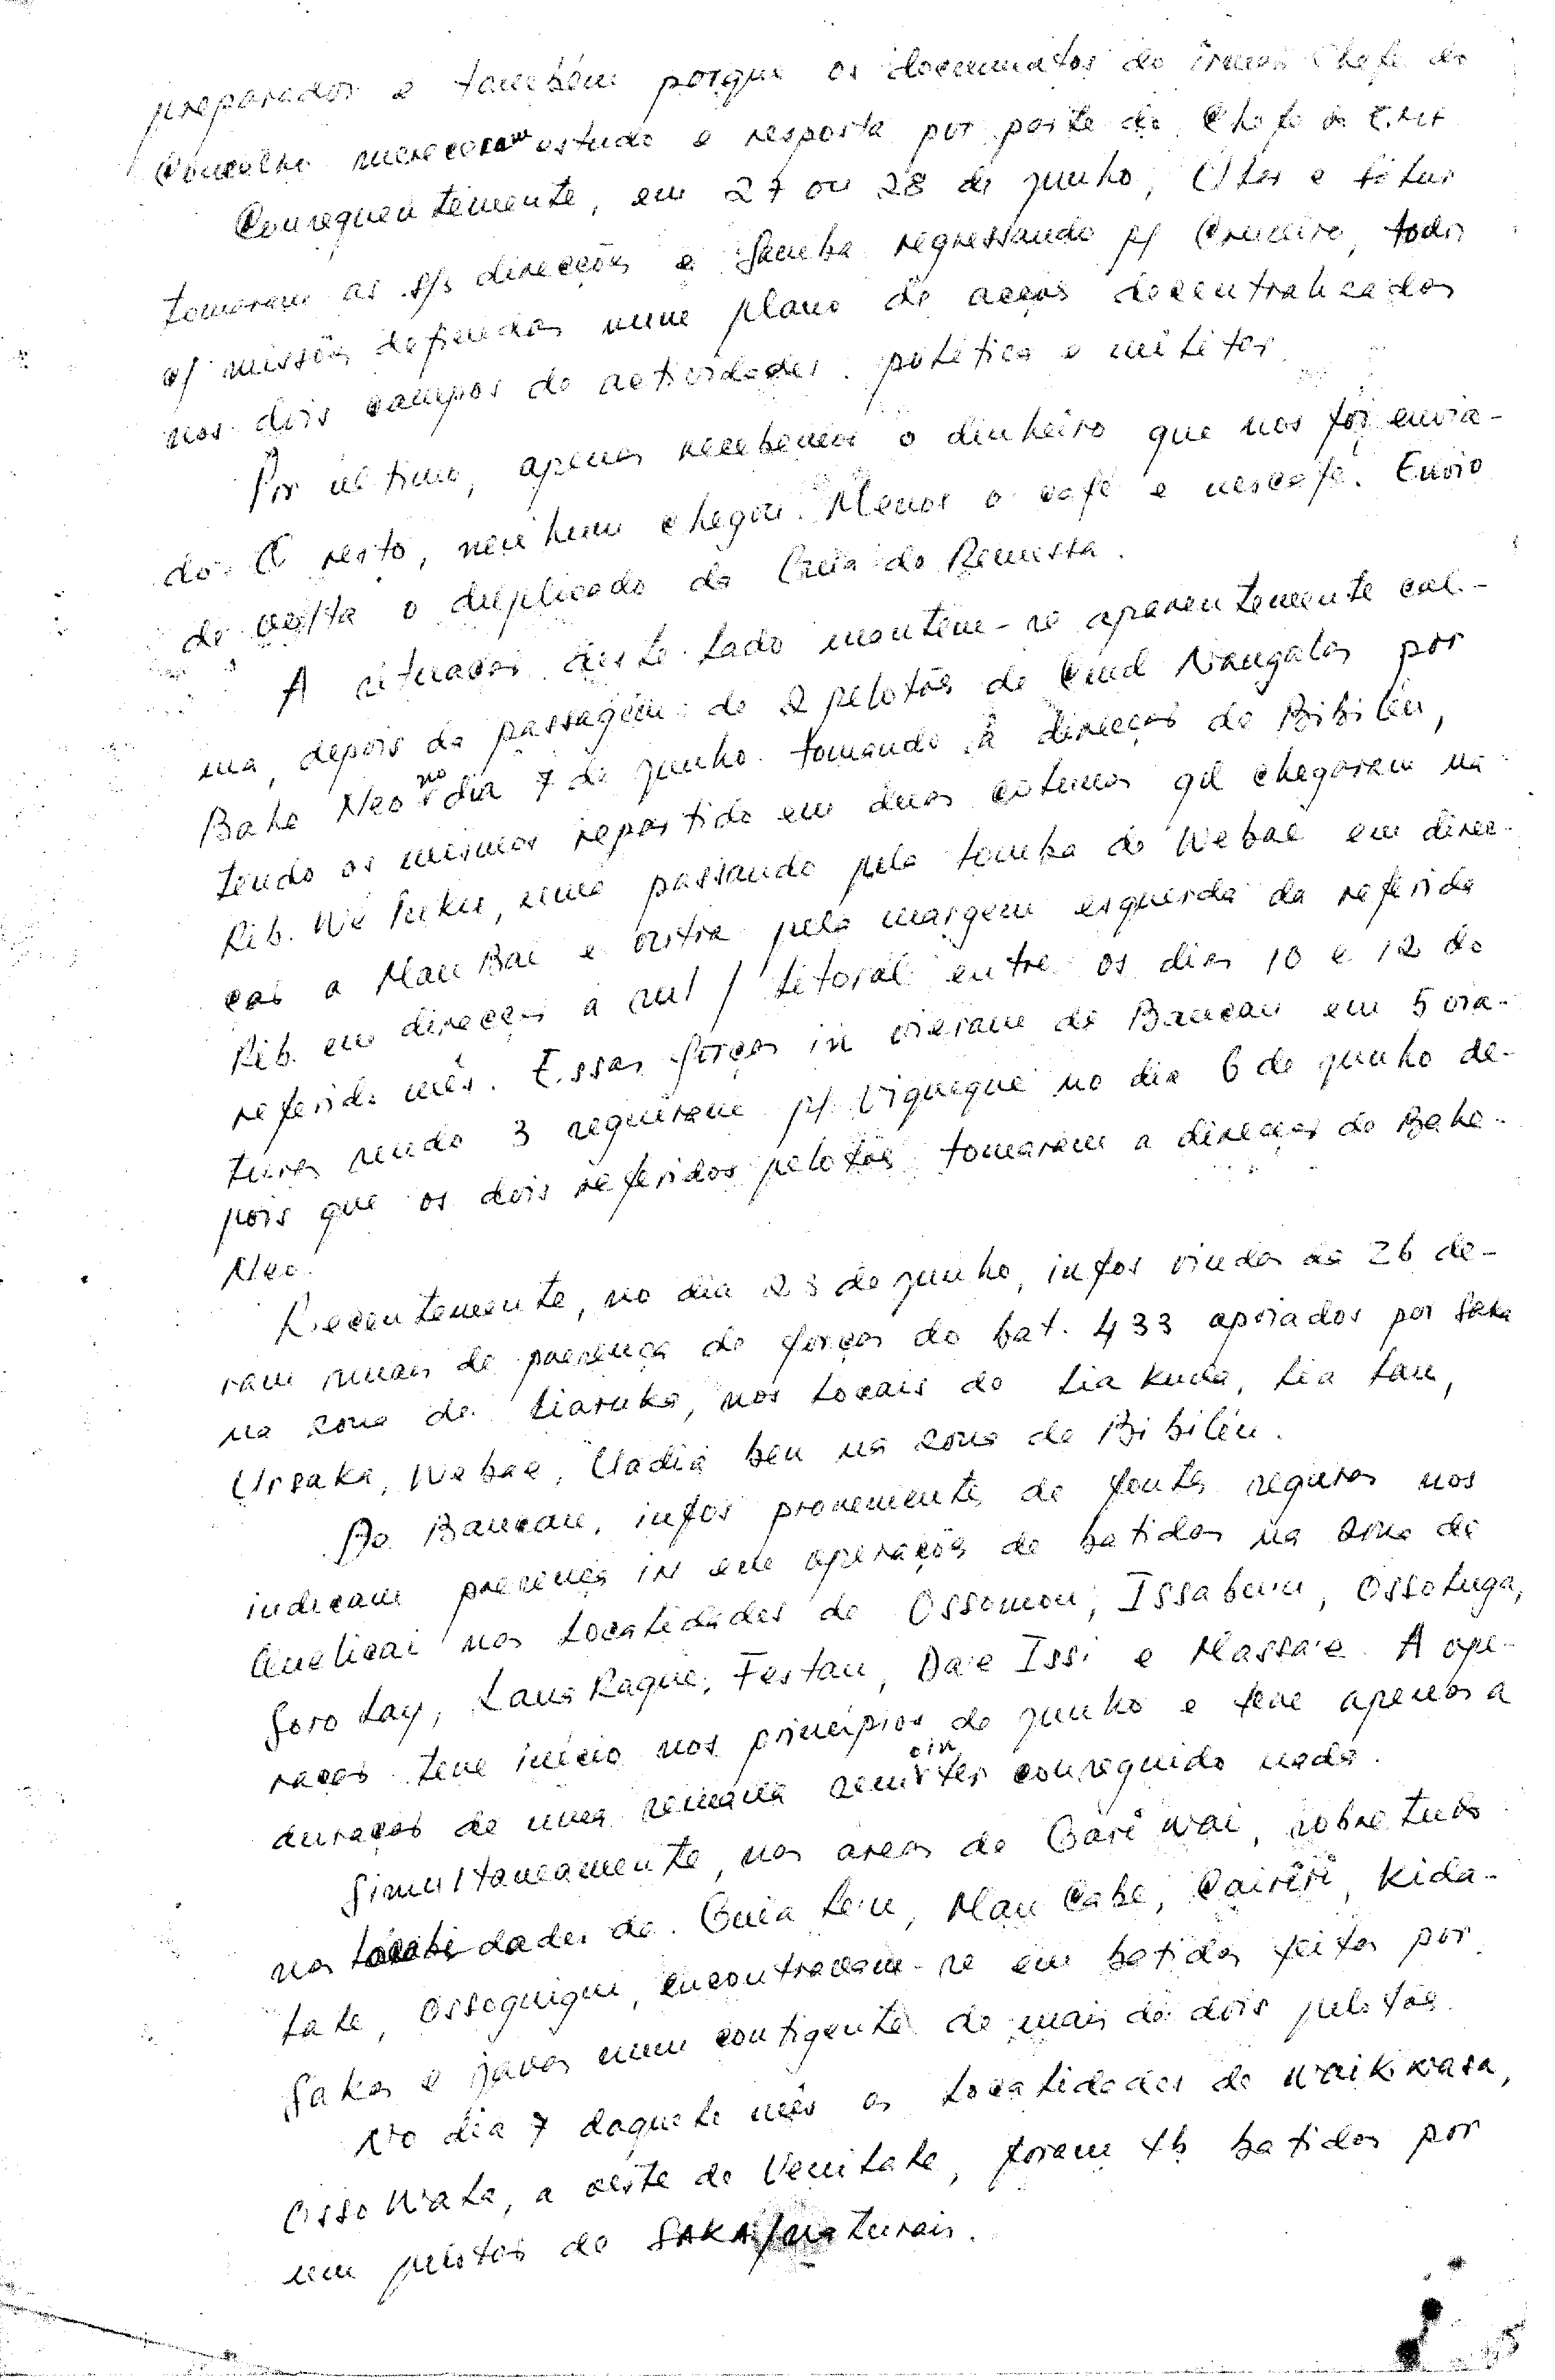 preparados e também porque os documentos do Irmão Chefe do
Concelho mereceram estudo e resposta por parte do Chefe do E.M.
Consequentemente, em 27 ou 28 de junho, Ular e Fitur
tomaram as s/s direcções e Samba regressando p/ Cruzeiro, todos
c/ missões definidas num plano de acção decentralizados
nos dois campos de actividades: política e militar.
Por último, apenas recebemos o dinheiro que nos foi envia-
do. O resto, nenhum chegou. Menos o café e nescafé. Envio
de volta o duplicado da Guia de Remessa.
A situação deste lado mantém-se aparentemente cal-
ma, depois da passagem de 2 pelotões de Cmd Nangalas por
Baha Neo no dia 7 de junho tomando a direcção de Bibiléu,
tendo os mesmos repartido em duas colunas qd chegaram na
Rib. We Luku, uma passando pela lomba de Webae em direc-
ção a Mau Bae e outra pela margem esquerda da referida
Rib. em direcção a sul / litoral entre os dias 10 e 12 do
referido mês. Essas forças in vieram de Baucau em 5 via-
turas sendo 3 seguiram p/ Viqueque no dia 6 de junho de-
pois que os dois referidos pelotões tomaram a direcção de Baha-
Neo.
Recentemente, no dia 23 de junho, infos vindas da 26 de-
ram sinais de presença de forças do bat. 433 apoiados por Saka
na zona de Liaruka, nos locais de Lia kuda, Lia lau,
Ursaka, Webae, Uadia beu na zona de Bibiléu.
Do Baucau, infos proveniente de fontes seguras nos
indicam presença in em operações de batidas na zona de
Quelicai nas localidades de Ossomou, Issaburu, Ossoluga,
Soro lay, Laua Raque, Festau, Dae Issi e Massa'e. A ope-
ração teve início nos princípios de junho e teve apenas a
duração de uma semana sem o in ter conseguido nada.
Simultaneamente, nas áreas de Gari wai, sobretudo
nas localidades de Guia leu, Mau Cabe, Cairiri, Kida-
lale, Ossoguigui, encontravam-se em batidas feitas por
Sakas e javas num contigente de mais de dois pelotões.
No dia 7 daquele mês as localidades de Waikiwasa,
Osso Wala, a oeste de Venilale, foram tb batidas por
um pelotão de SAKA/naturais.